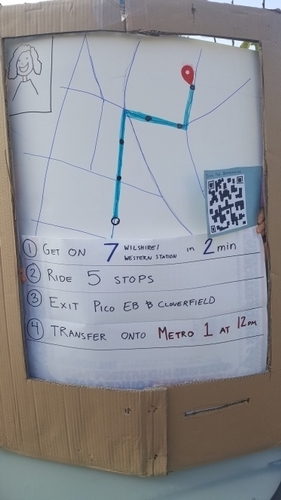 ① GET ON 7 WILSHIRE/ WESTERN STATION in 2 min
② RIDE 5 STOPS
③ EXIT PICO EB & CLOVERFIELD
④ TRANSFER ONTO METRO 1 AT 12pm